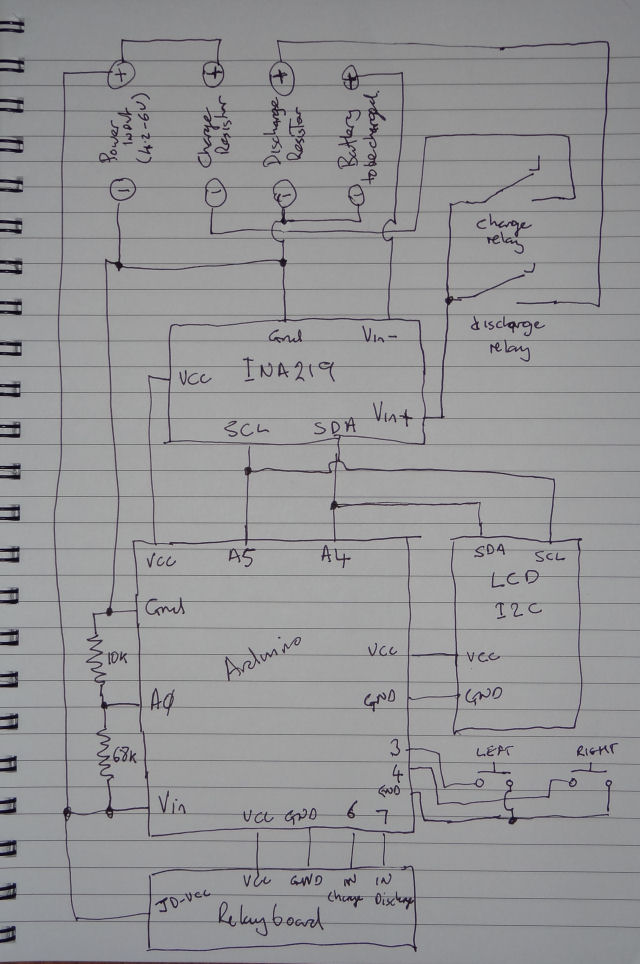 + + + +
Power Input (4.2-6V)
Charge Resistor
Discharge Resistor
Battery to be charged.
- - - -
charge relay
discharge relay
Gnd Vin-
VCC INA219
Vin+
SCL SDA
VCC A5 A4
SDA SCL
LCD
I2C
Gnd
10K
Arduino
VCC VCC
A0 GND GND
68K
3 LEFT RIGHT
4
GND
Vin
VCC GND 6 7
VCC GND IN Charge IN Discharge
JD-VCC
Relayboard